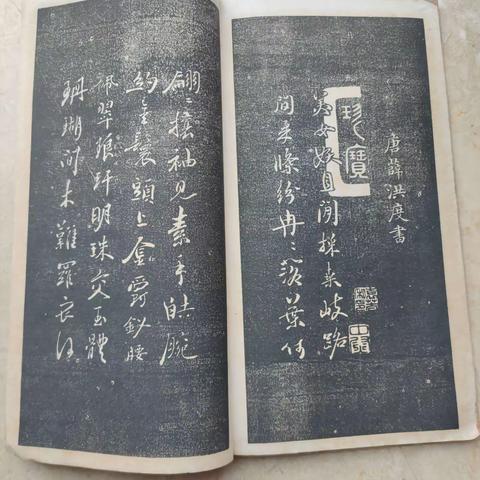 唐薛洪度書
珍寶
美女妖且閒採桑歧路
間柔條紛冉〻落葉何
翩〻攘袖見素手皓腕
約金鬟頭上金爵釵腰
佩翠琅玕明珠交玉體
珊瑚間木難羅衣何